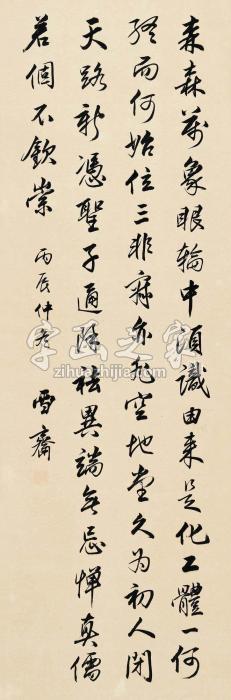 森森萬象眼輪中須識由來是化工體一何
終而何始位三非寂亦非空地堂久為初人閉
天路新憑聖子通除祛異端無忌憚真儒
若個不欽崇 丙辰仲冬 雪齋
字画之家
zihuazhijia.com